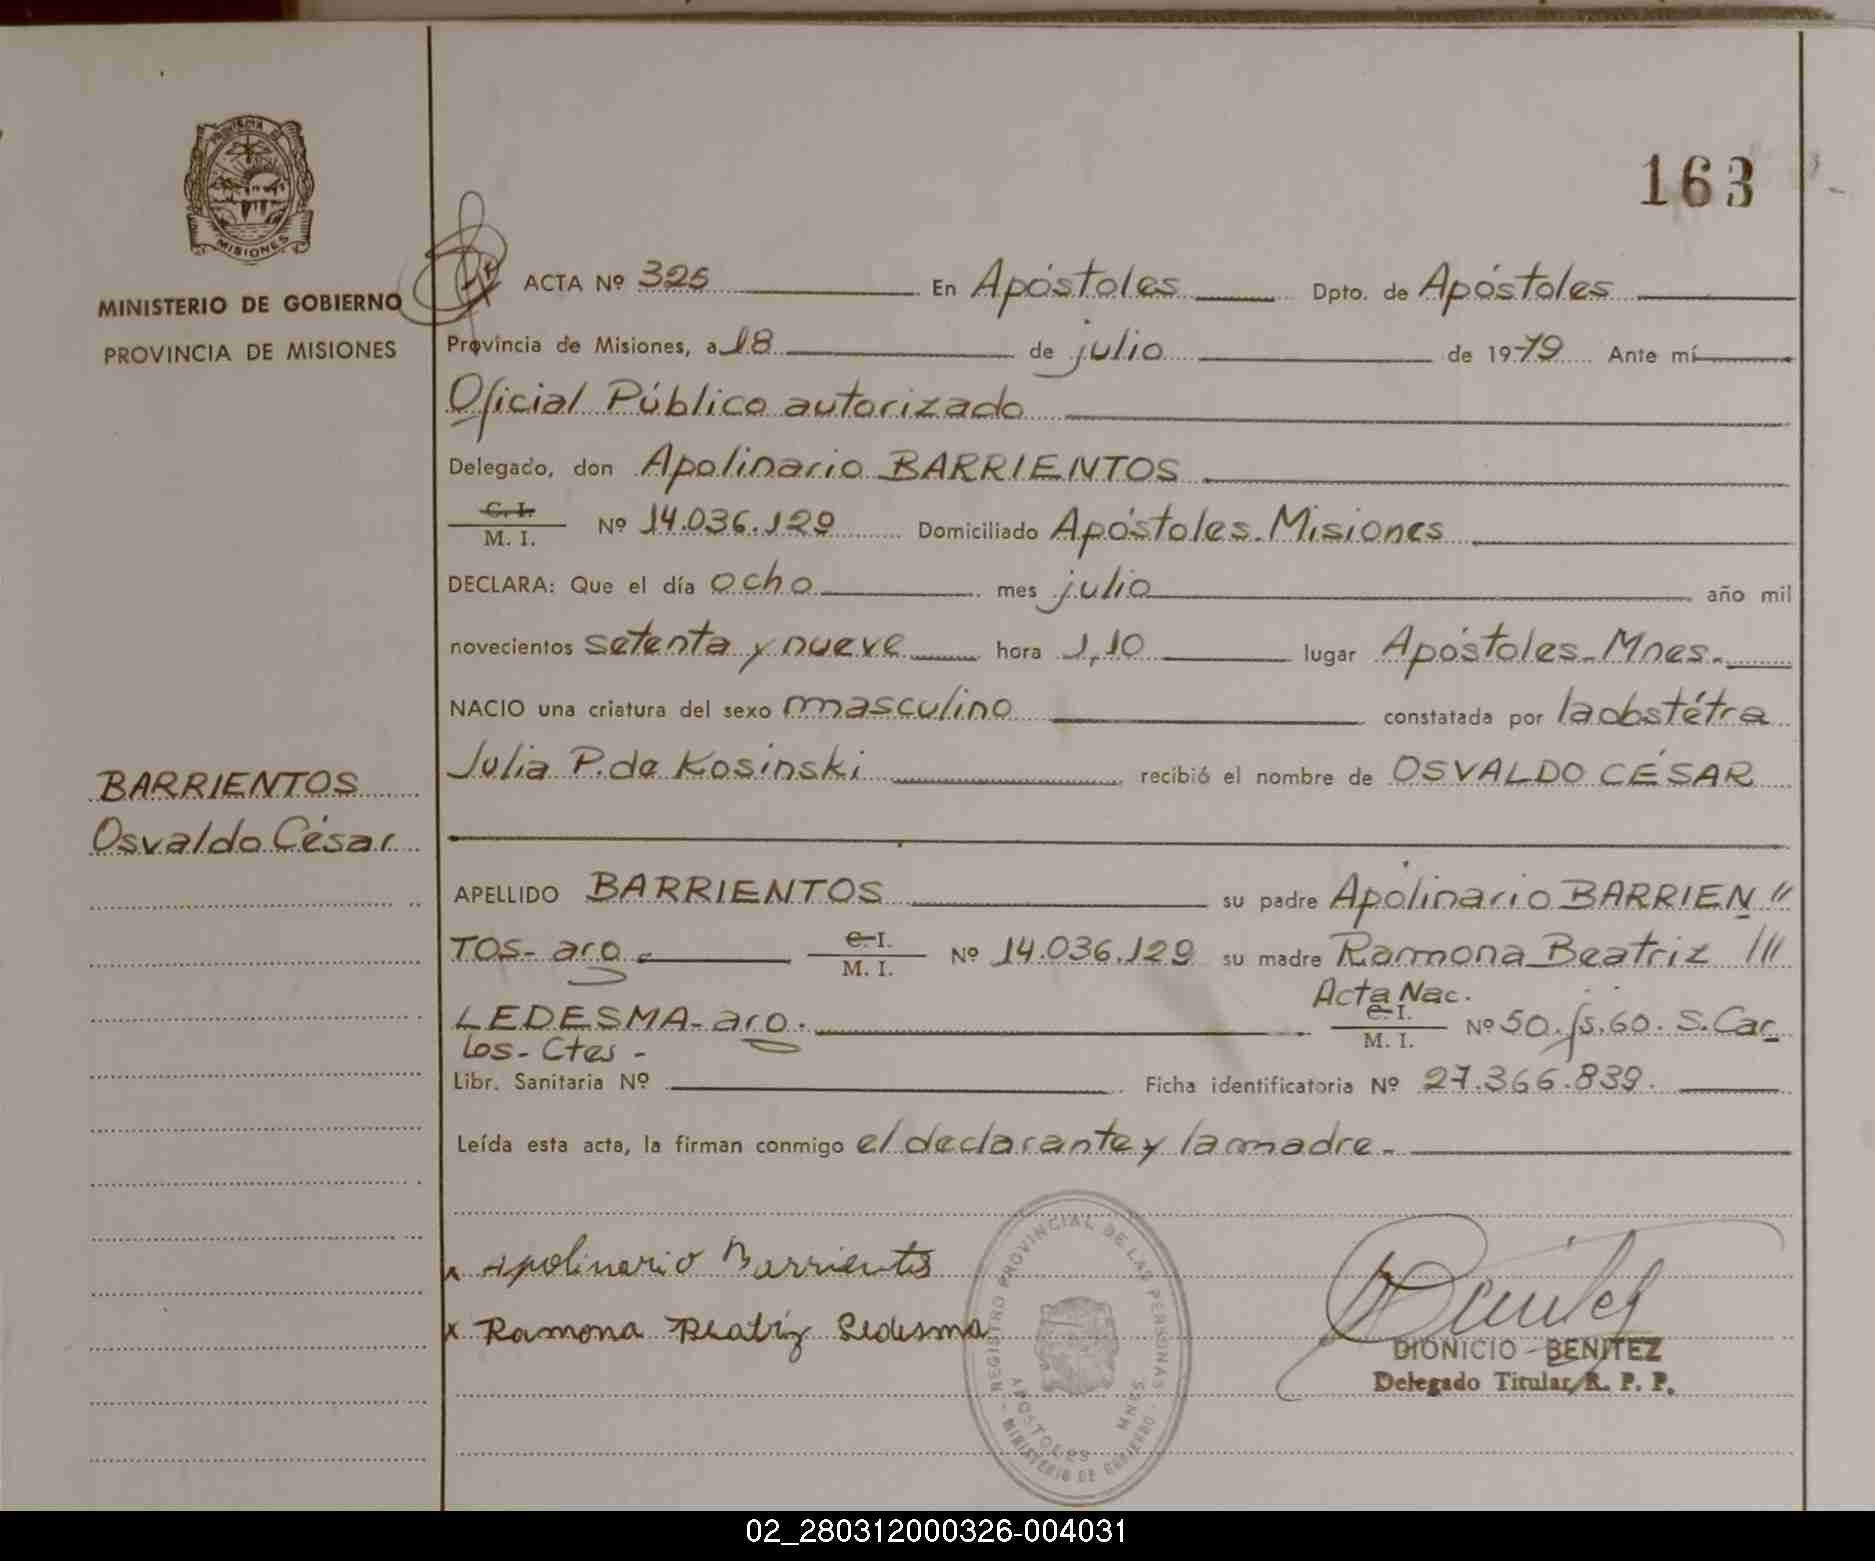 PROVINCIA DE
MISIONES
MINISTERIO DE GOBIERNO
PROVINCIA DE MISIONES
163
ACTA Nº 325 En Apóstoles Dpto. de Apóstoles
Provincia de Misiones, a 18 de julio de 1979 Ante mí
Oficial Público autorizado
Delegado, don Apolinario BARRIENTOS
C. I.
M. I. Nº 14.036.129 Domiciliado Apóstoles-Misiones
DECLARA: Que el día ocho mes julio año mil
novecientos setenta y nueve hora 1,10 lugar Apóstoles-Mnes.
NACIO una criatura del sexo masculino constatada por la obstétra
Julia P. de Kosinski recibió el nombre de OSVALDO CÉSAR
BARRIENTOS
Osvaldo César
APELLIDO BARRIENTOS su padre Apolinario BARRIEN "
TOS- aro. C. I.
M. I. Nº 14.036.129 su madre Ramona Beatriz ///
LEDESMA- aro. Acta Nac.
C. I.
M. I. Nº 50. fs. 60. S. Car
los- Ctes -
Libr. Sanitaria Nº Ficha identificatoria Nº 27.366.839.
Leída esta acta, la firman conmigo el declarante y la madre.-
x Apolinario Barrientos
x Ramona Beatriz Ledesma
REGISTRO PROVINCIAL DE LAS PERSONAS
APOSTOLES MNES
MINISTERIO DE GOBIERNO
DIONICIO BENITEZ
Delegado Titular R. P. P.
02_280312000326-004031